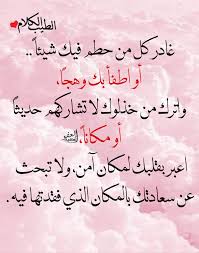 الطيب الكلام
غادر كل من حطم فيك شيئاً ..
أو اطفأ بك وهجاً،
واترك من خذلوك لا تشاركهم حديثاً
أو مكاناً،
اعبر بقلبك لمكان آمن، ولا تبحث
عن سعادتك بالمكان الذي فقدتها فيه .